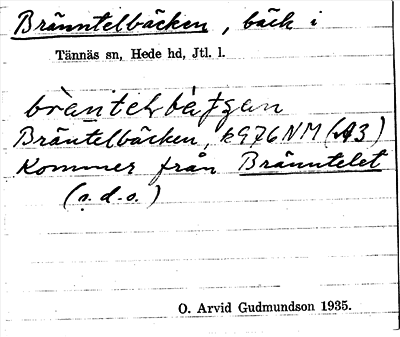 Bränntelbäcken, bäck i
Tännäs sn, Hede hd, Jtl. l.
Bräntelbäcken, k976NM(A3)
Kommer från Bränntelet
(s.d.o.)
O. Arvid Gudmundson 1935.